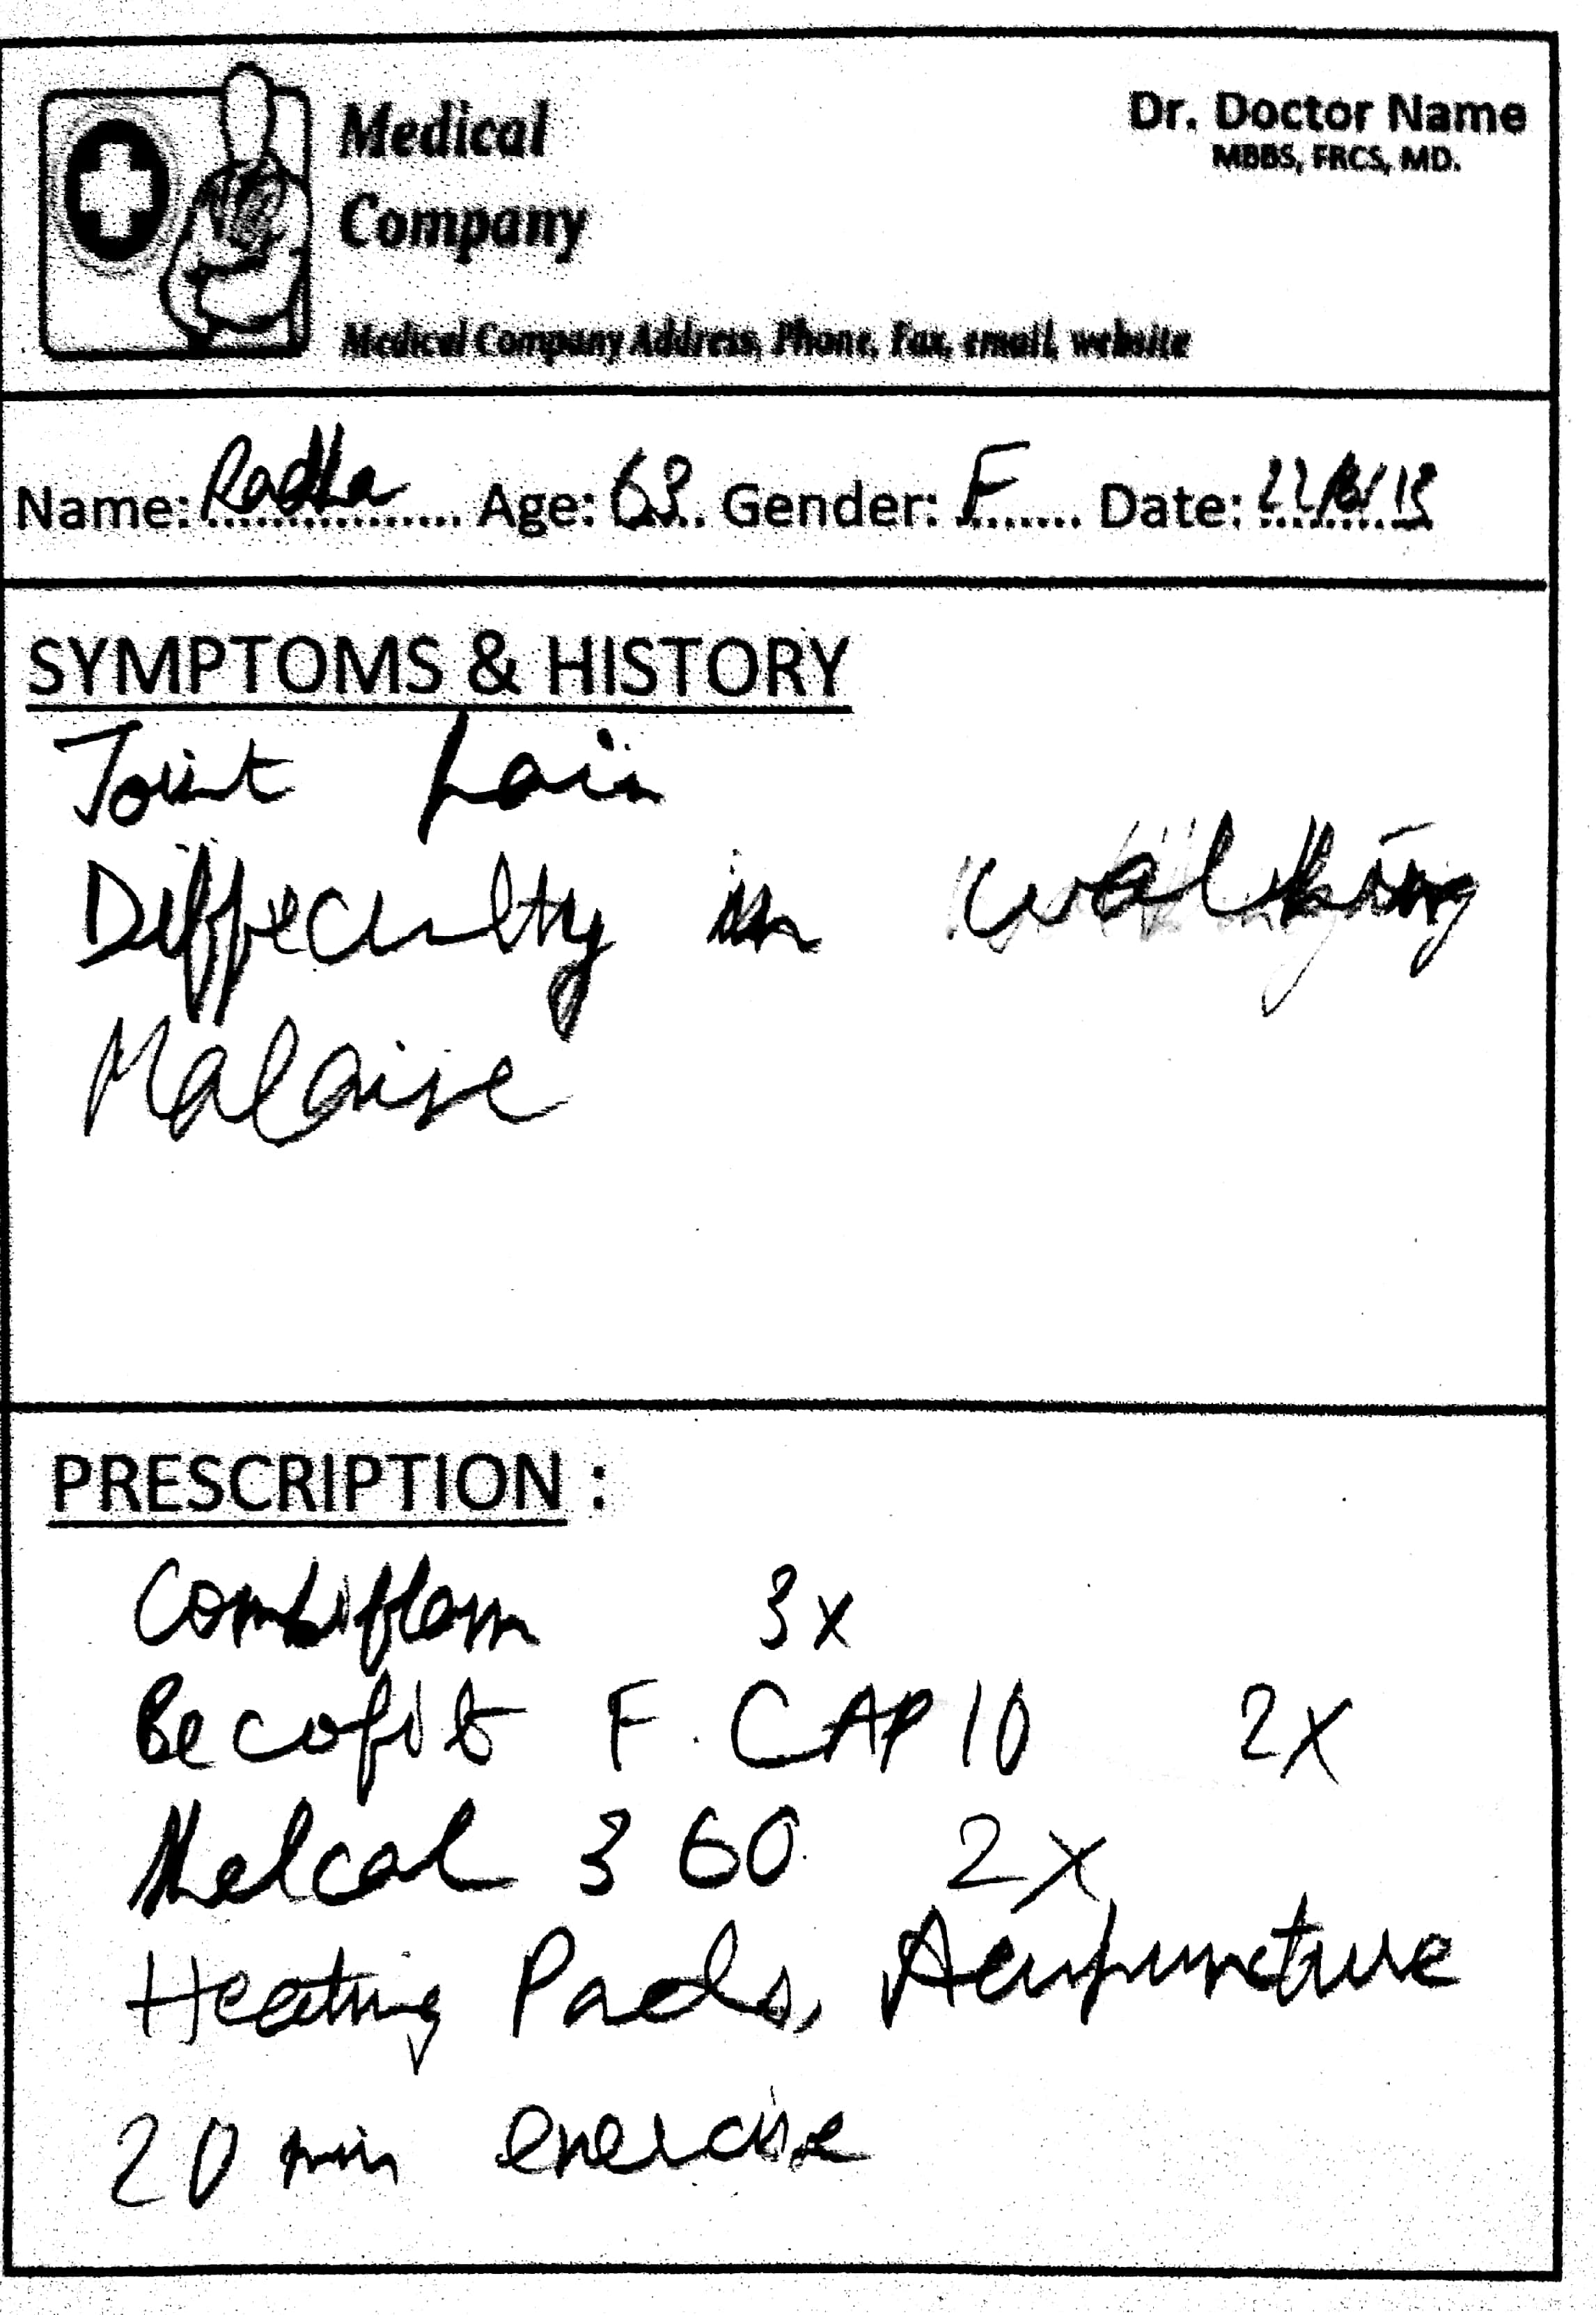 Medical
Company
Dr. Doctor Name
MBBS, FRCS, MD.
Medical Company Address, Phone, Fax, email, website
Name: Radha Age: 63 Gender: F Date:
SYMPTOMS & HISTORY
Joint pain
Diffeculty in walking
Malaise
PRESCRIPTION :
Combiflam 3x
Becofit F. CAP 10 2x
Melcal 3 60 2x
Heating Pads, Acupuncture
20 min exercise